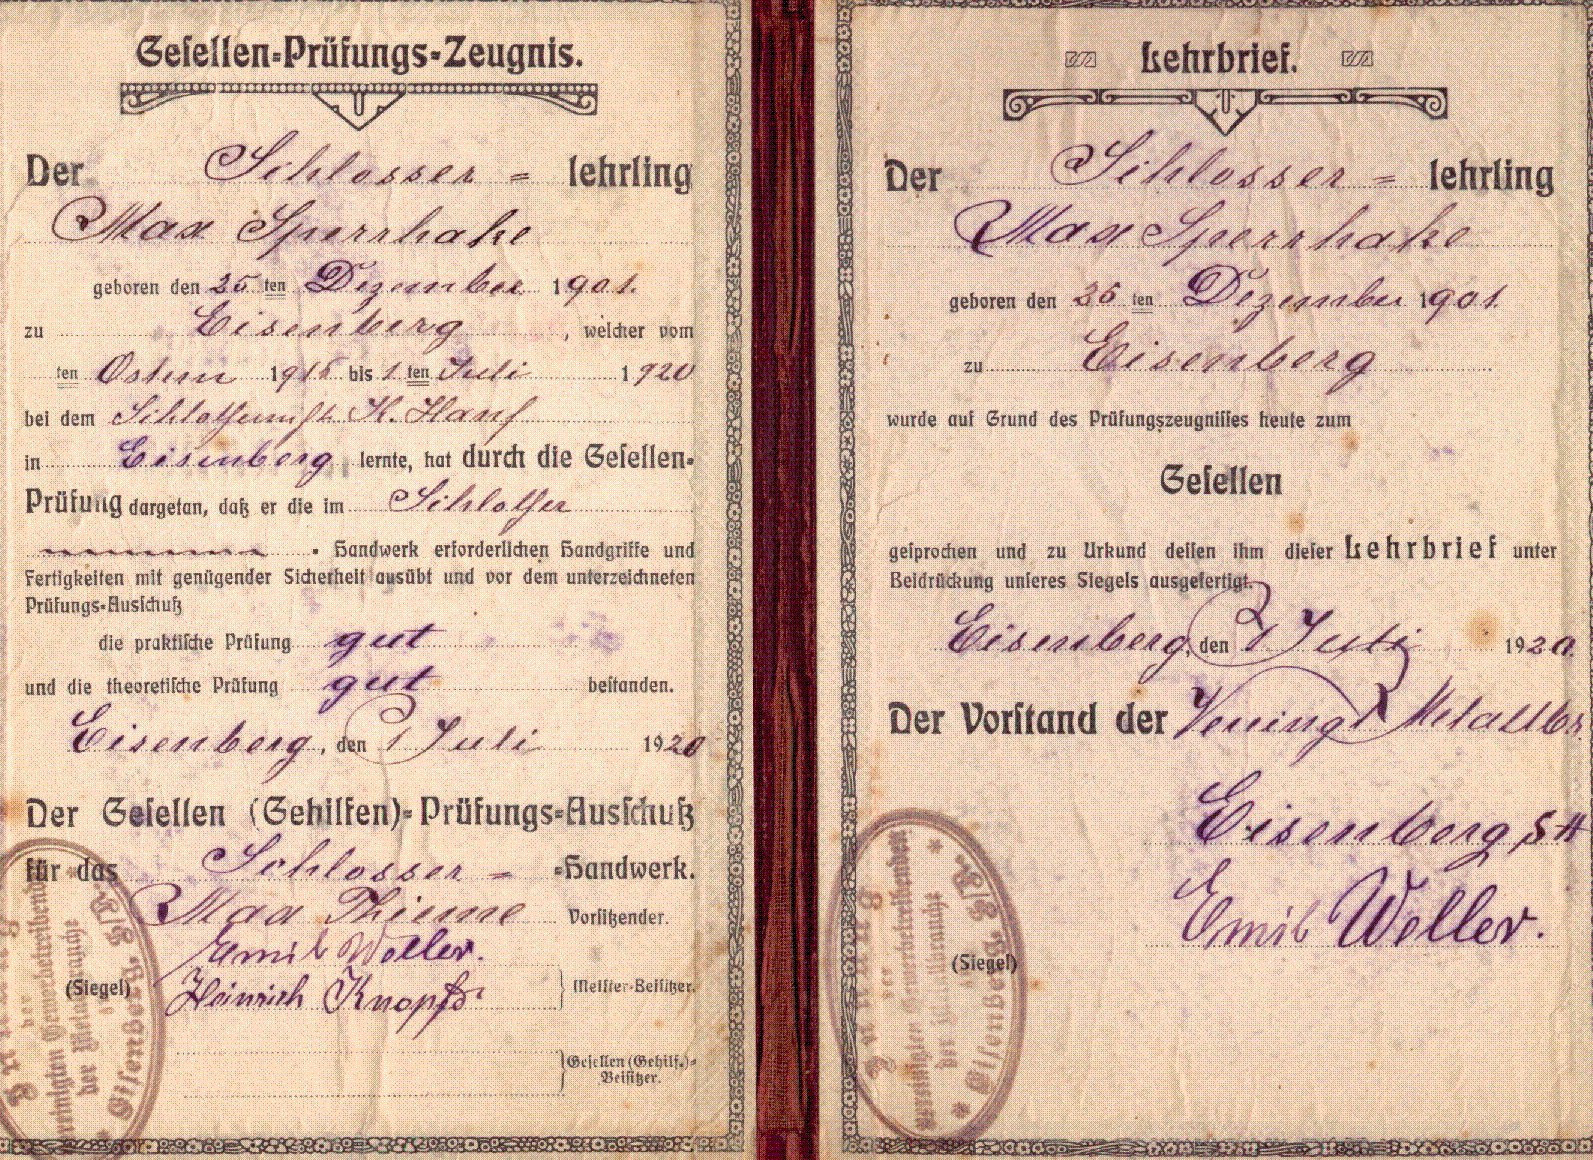 Gesellen-Prüfungs-Zeugnis.
Der Schlosser = lehrling
Max Sperrhake
geboren den 25 ten Dezember 1901.
zu Eisenberg, welcher vom
ten Ostern 1916 bis 1 ten Juli 1920
bei dem Schlossermstr. K. Hanf
in Eisenberg lernte, hat durch die Gesellen-
Prüfung dargetan, daß er die im Schlosser
Handwerk erforderlichen Handgriffe und
Fertigkeiten mit genügender Sicherheit ausübt und vor dem unterzeichneten
Prüfungs-Ausschuß
die praktische Prüfung gut
und die theoretische Prüfung gut bestanden.
Eisenberg, den 1 Juli 1920
Der Gesellen (Gehilfen)-Prüfungs-Ausschuß
für das Schlosser = -Handwerk.
Max Thieme Vorsitzender.
Emil Weller.
(Siegel) Heinrich Knopf Meister-Beisitzer.
Gesellen (Gehilf.)-
Beisitzer.
Innung
der
vereinigten Gewerbetreibenden
der Metallbranche
Eisenberg S/A.
Lehrbrief.
Der Schlosser = lehrling
Max Sperrhake
geboren den 25 ten Dezember 1901
zu Eisenberg
wurde auf Grund des Prüfungszeugnisses heute zum
Gesellen
gesprochen und zu Urkund dessen ihm dieser Lehrbrief unter
Beidrückung unseres Siegels ausgefertigt.
Eisenberg, den 1 Juli 1920.
Der Vorstand der Metallbr.
Eisenberg S A
Emil Weller.
(Siegel)
Innung
der
vereinigten Gewerbetreibenden
der Metallbranche
Eisenberg S/A.